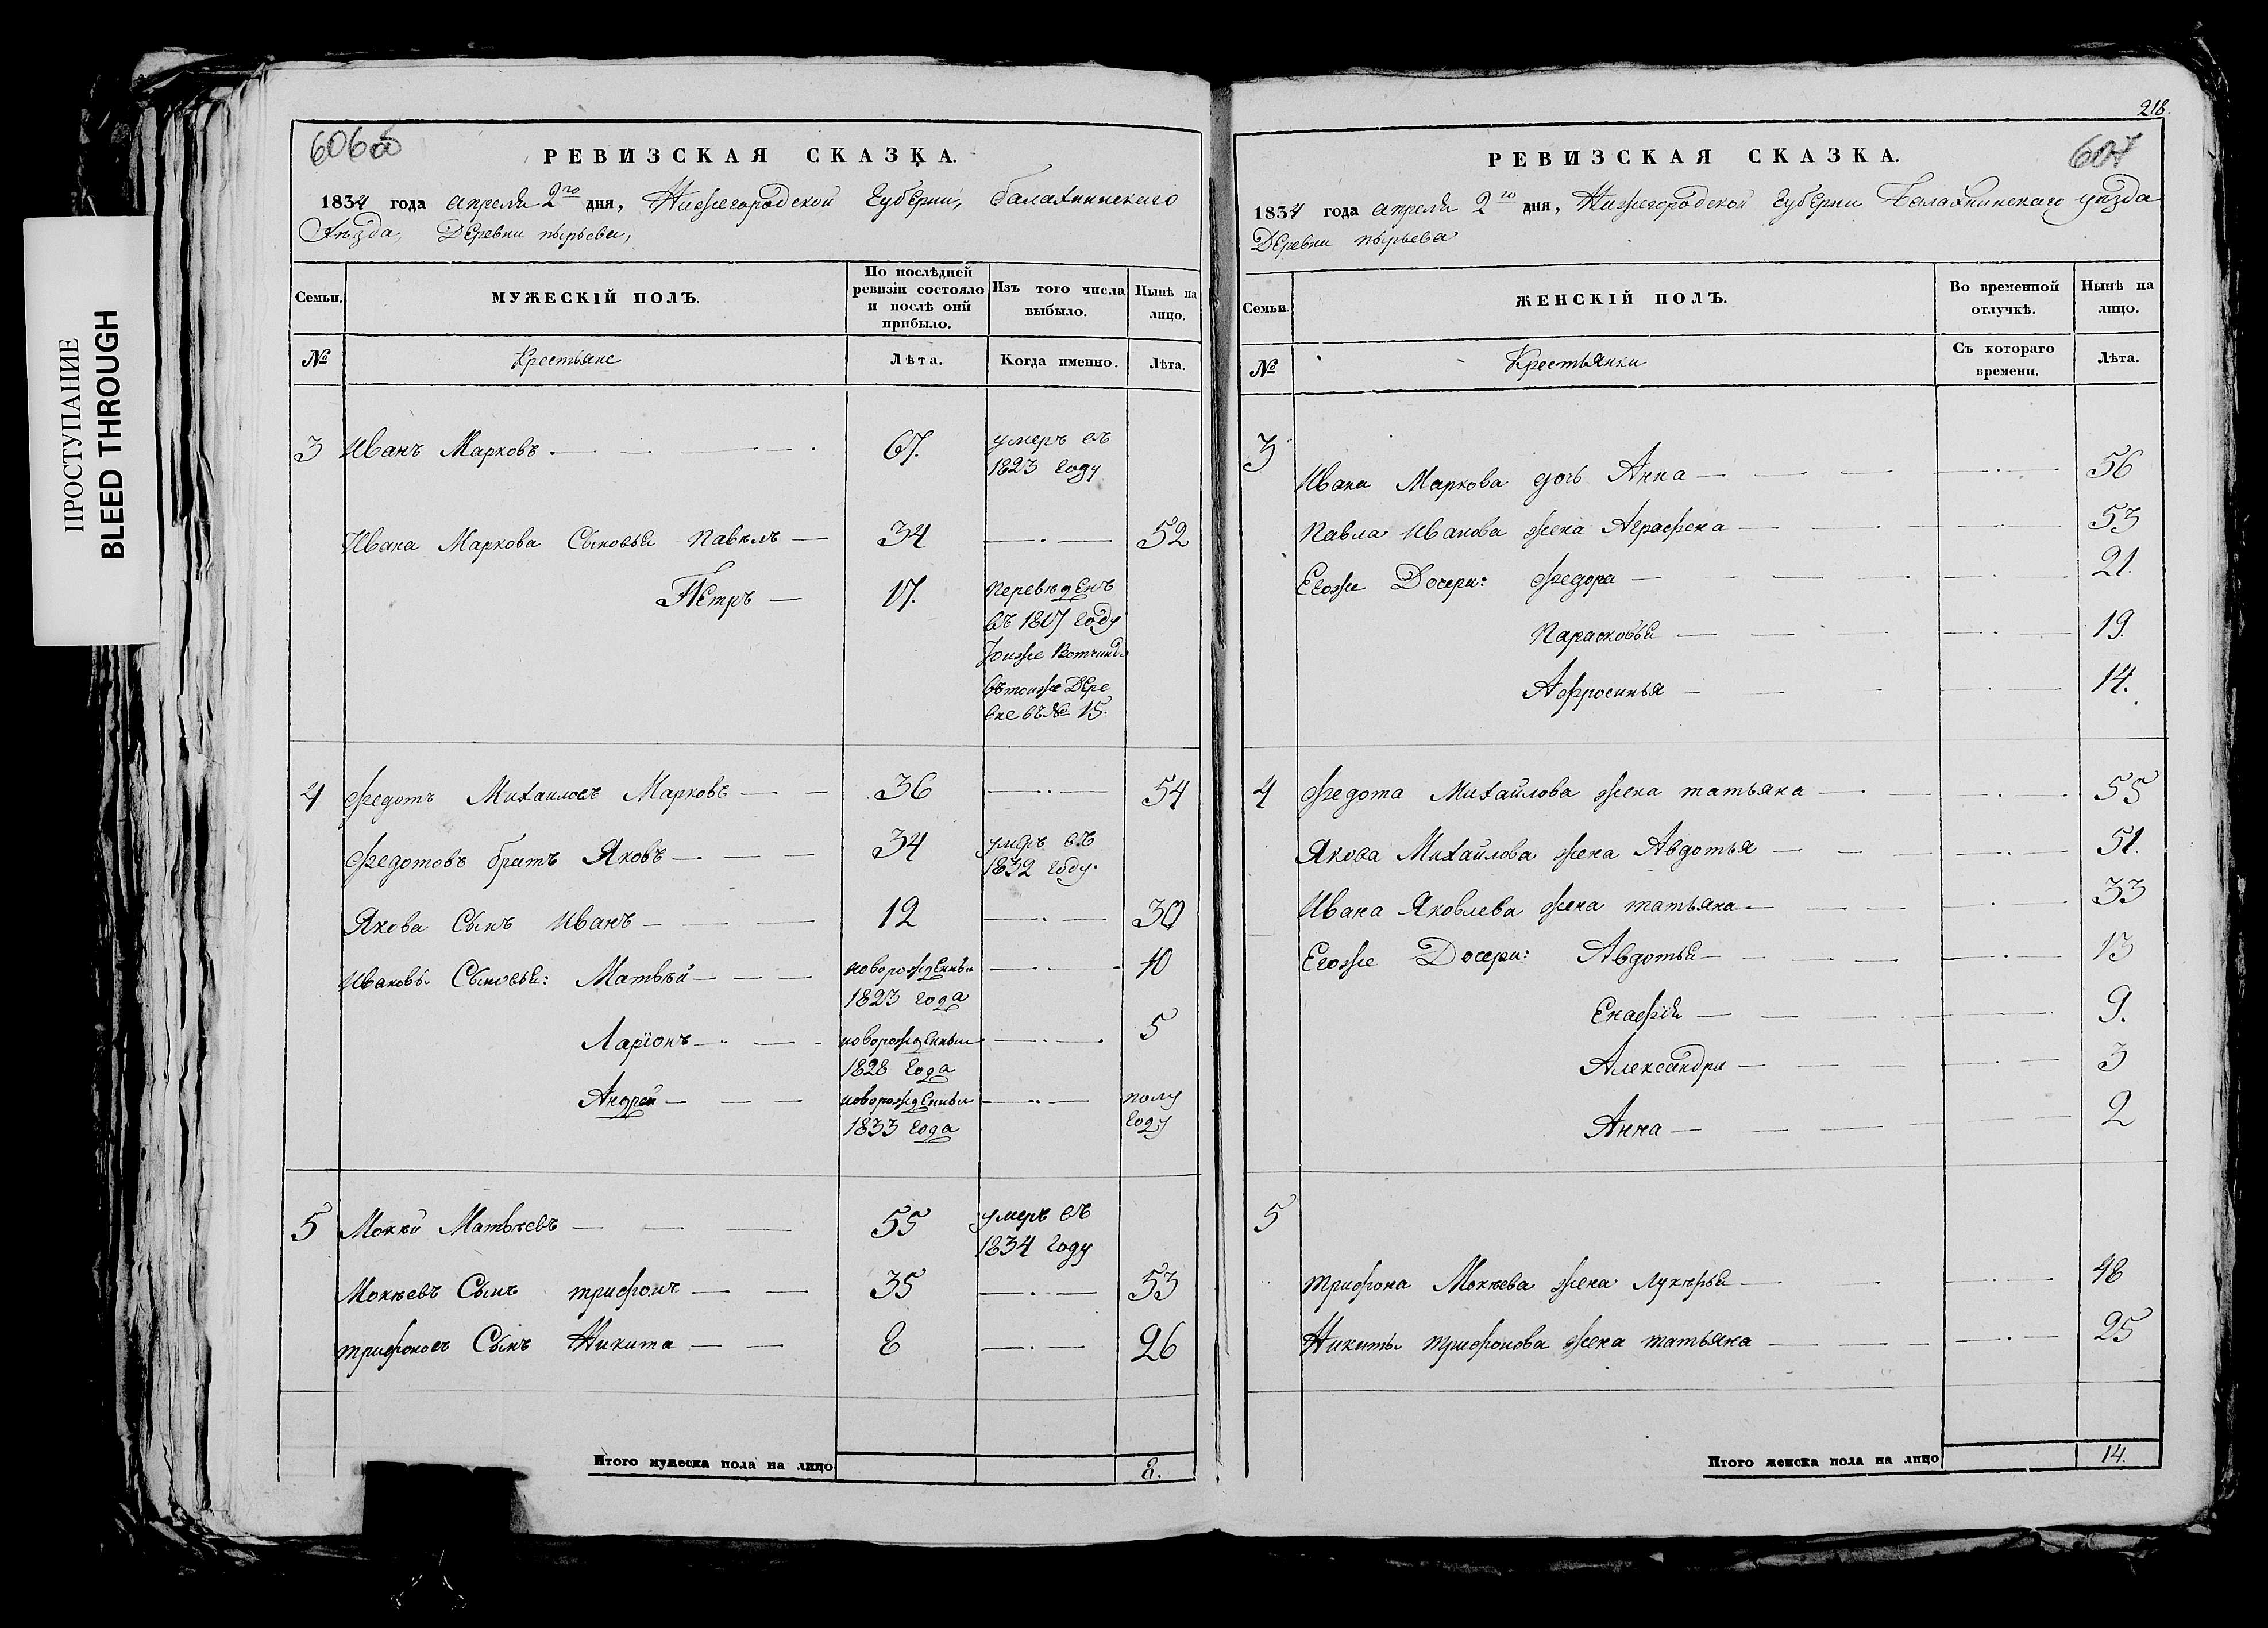 ПРОСТУПАНИЕ
BLEED THROUGH
606об
РЕВИЗСКАЯ СКАЗКА.
1834 года апреля 2го дня, Нижегородской Губернии, балахнинского
уѣзда, Деревни пырьева,
Семьи.
МУЖЕСКІЙ ПОЛЪ.
По послѣдней
ревизіи состояло
и послѣ онй
прибыло.
Изъ того числа
выбыло.
Нынѣ на
лицо.
№
Крестьяне
Лѣта.
Когда именно.
Лѣта.
3 Иванъ Марковъ 67. умеръ въ
1823 году
Ивана Маркова Сыновья Павелъ 34 52
Пётръ 17. перевѣденъ
въ 1817 году
тоиже Вотчины
втоиже Дере
вне въ № 15.
4 Федотъ Михаиловъ Марковъ 36 54
Федотовъ братъ Яковъ 34 умеръ въ
1832 году.
Якова Сынъ Иванъ 12 30
Ивановы Сыновья: Матвѣй новорожденныи 10
1823 года
Ларіонъ новорожденныи 5
1828 года
Андреи новорожденныи полу
1833 года году
5 Мокѣй Матвѣевъ 55 умеръ въ
1834 году
Мокѣевъ Сынъ трифонъ 35 53
трифоновъ Сынъ Никита 8 26
Итого мужеска пола на лицо 8.
218.
607
РЕВИЗСКАЯ СКАЗКА.
1834 года апреля 2го дня, Нижегородской губернии Балахнинскаго уѣзда
Деревни пырьева
Семьи.
ЖЕНСКІЙ ПОЛЪ.
Во временной
отлучкѣ.
Нынѣ на
лицо.
№
Крестьянки
Съ котораго
времени.
Лѣта.
3
Ивана Маркова дочь Анна 56
Павла Иванова жена Аграфена 53
Егоже Дочери: Федора 21.
Парасковья 19.
Афросинья 14.
4 Федота Михайлова жена татьяна 55
Якова Михайлова жена Авдотья 51.
Ивана Яковлева жена татьяна 33
Егоже Дочери: Авдотья 13
9.
Александра 3
Анна 2
5
трифона Мокѣева жена Лукѣрья 48
Никиты трифонова жена татьяна 25
Итого женска пола на лицо 14.